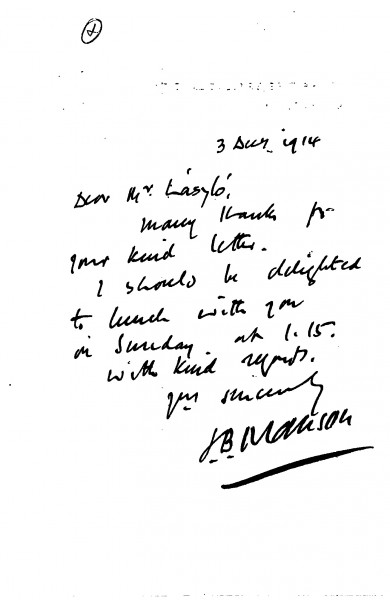 3 Dec. 1914
Dear Mr. László,
Many thanks for
your kind letter.
I should be delighted
to lunch with you
on Sunday at 1.15.
with kind regards.
yrs sincerely
J.B. Manson